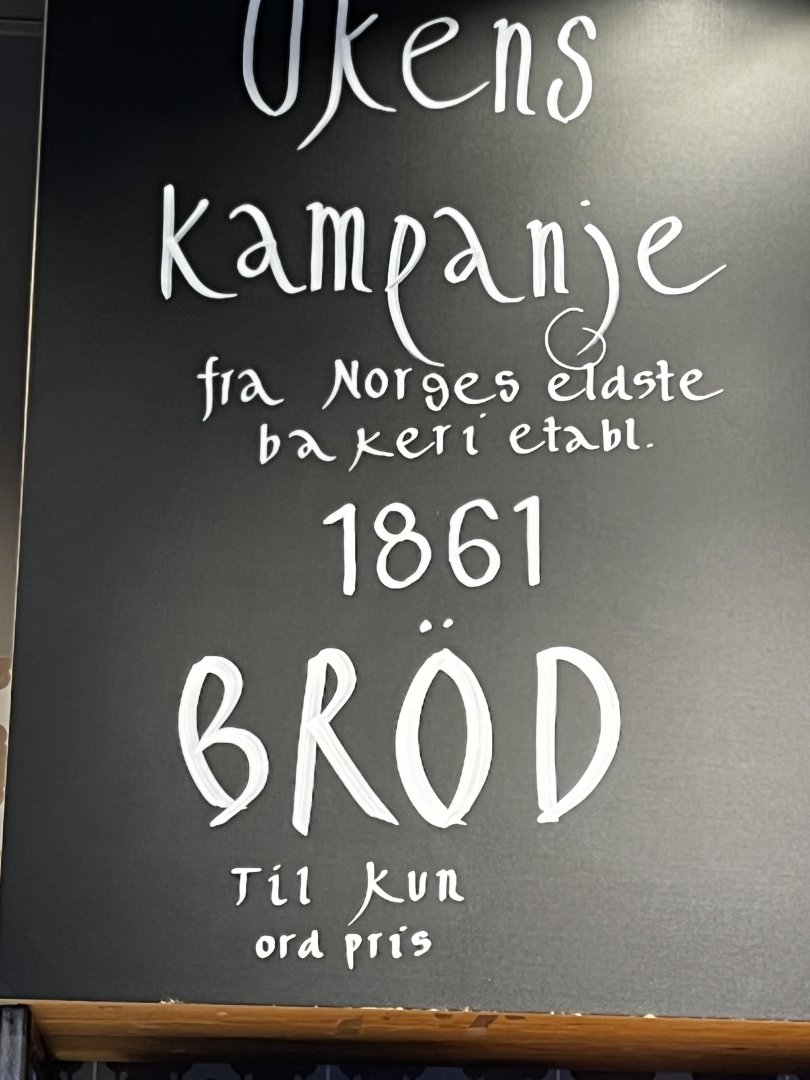 Ukens
kampanje
fra Norges eldste
bakeri etabl.
1861
BRÖD
Til kun
ord pris